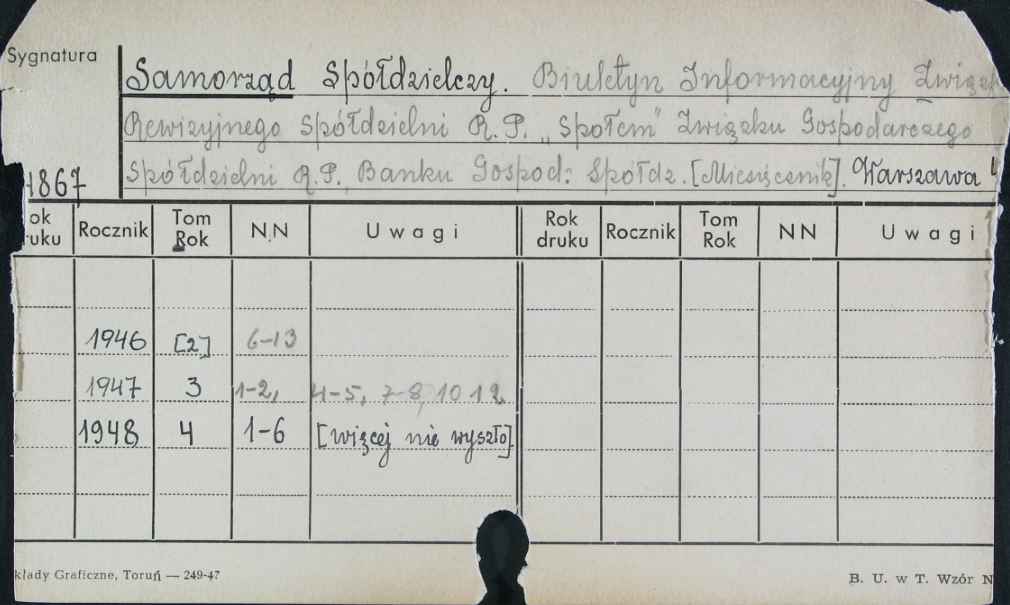 Sygnatura
Samorząd Spółdzielczy. Biuletyn Informacyjny Związk
Rewizyjnego Spółdzielni R.P. „Społem" Związku Gospodarczego
Spółdzielni R.P. Banku Gospod: Spółdz. [Miesięcznik]. Warszawa
1867
ok ruku Rocznik Tom Rok N.N Uwagi Rok druku Rocznik Tom Rok NN Uwagi
1946 [2] 6-13
1947 3 1-2, 4-5, 7-8, 10 12
1948 4 1-6 [więcej nie wyszło]
kłady Graficzne, Toruń — 249-47
B. U. w T. Wzór N